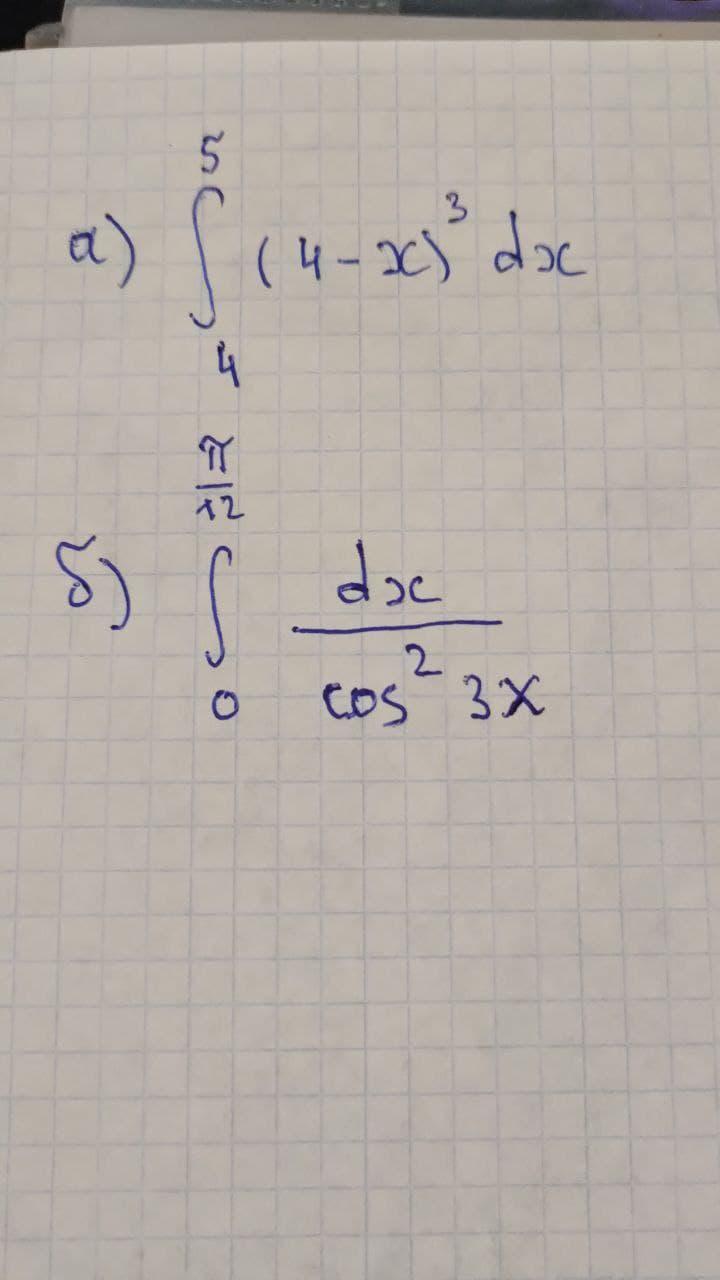 а) ∫₄⁵ (4-x)³ dx
б) ∫₀^(π/12) dx / cos² 3x